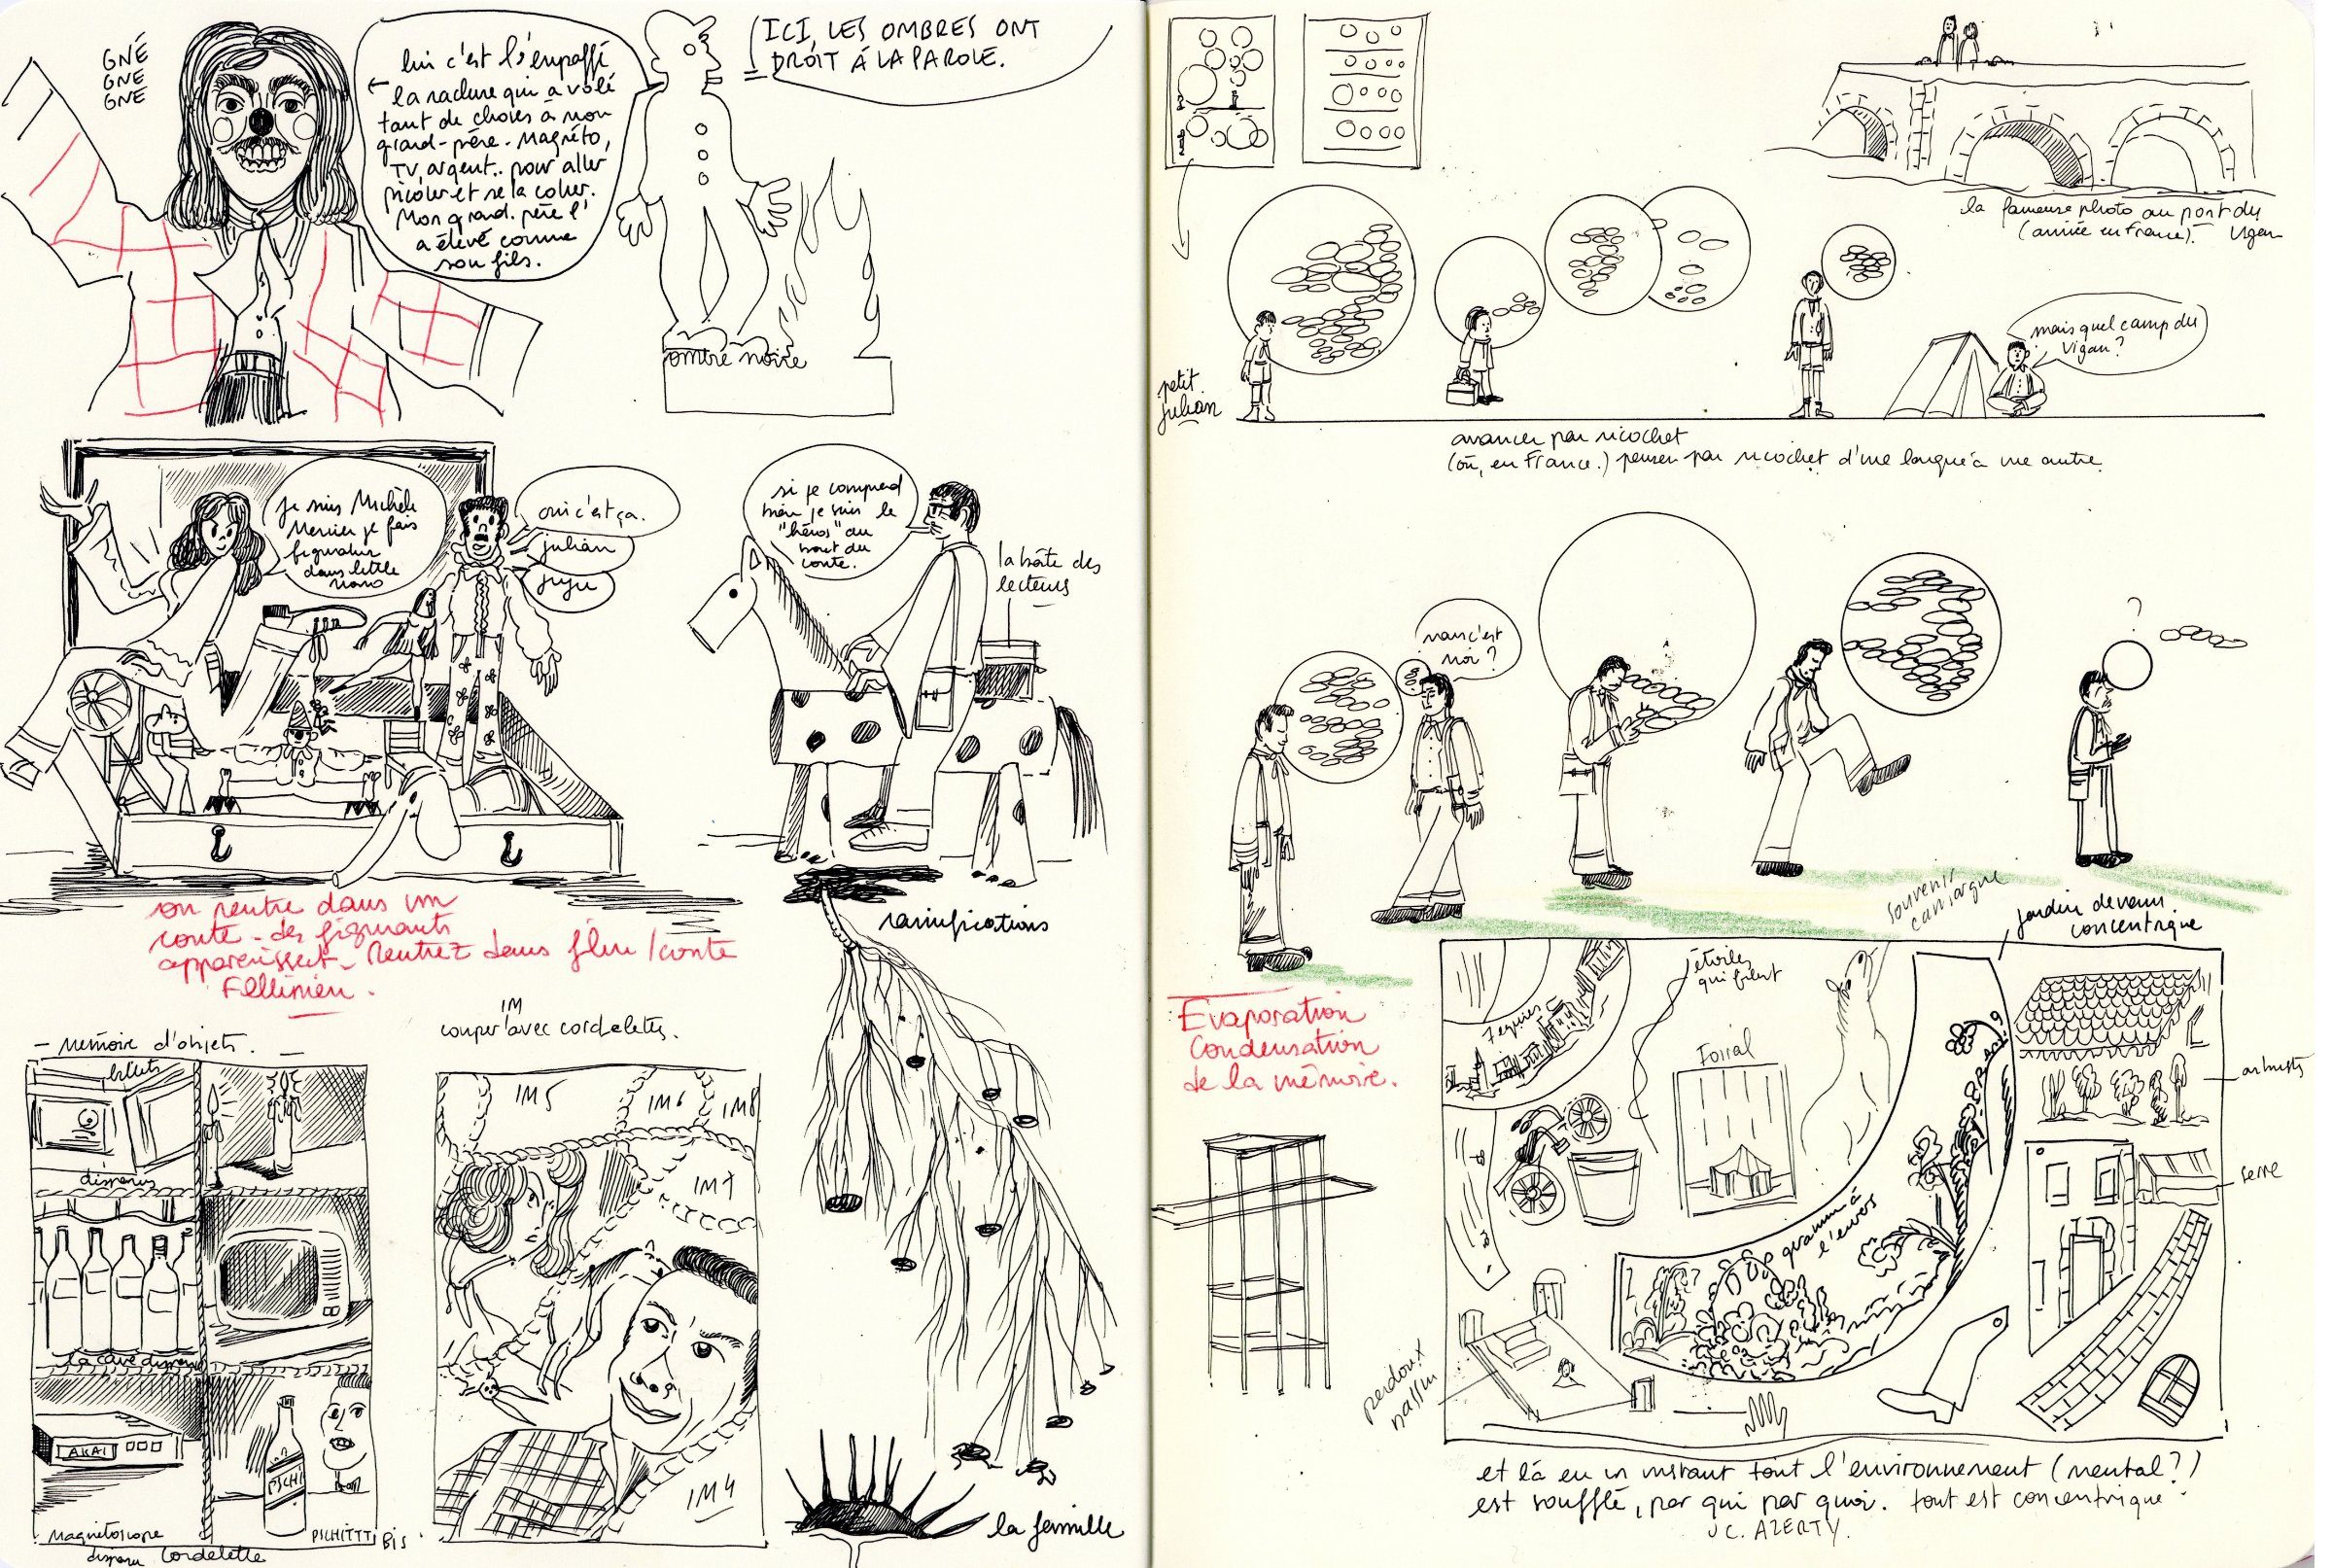 GNÉ
GNE
GNE
lui c'est l'empaffé
la raclure qui a volé
tant de choses à mon
grand-père. Magnéto,
TV, argent.. pour aller
picoler et se la couler.
Mon grand-père l'
a élevé comme
son fils.
ICI, LES OMBRES ONT
DROIT À LA PAROLE.
ombre noire
je suis Michèle
Mercier je fais
dans little
oui c'est ça.
julián
juju
si je comprend
bien je suis le
"héros" du
bout du
conte.
la boîte des
lecteurs
on rentre dans un
conte - des figurants
apparaissent - Rentrez dans film/conte
Fellinien.
ramifications
- mémoire d'objets. -
disparus
la cave disparue
AKAI
PSCHI
magnétoscope
disparu cordelette
PSCHITTT BIS
IM
couper avec cordelettes.
IM5
IM6
IM8
IM7
IM4
la famille
la fameuse photo au pont du
Vigan
(arrivée en France).
petit
julián
mais quel camp du
Vigan?
avancer par ricochet
(où, en France.) penser par ricochet d'une langue à une autre.
mais c'est
moi?
?
souvenir
camargue
jardin devenu
concentrique
Evaporation
Condensation
de la mémoire.
étoiles
qui filent
Foiral
à
l'envers
arbustes
serre
et là en un instant tout l'environnement (mental?)
est soufflé, par qui par quoi. tout est concentrique.
JC. AZERTY.